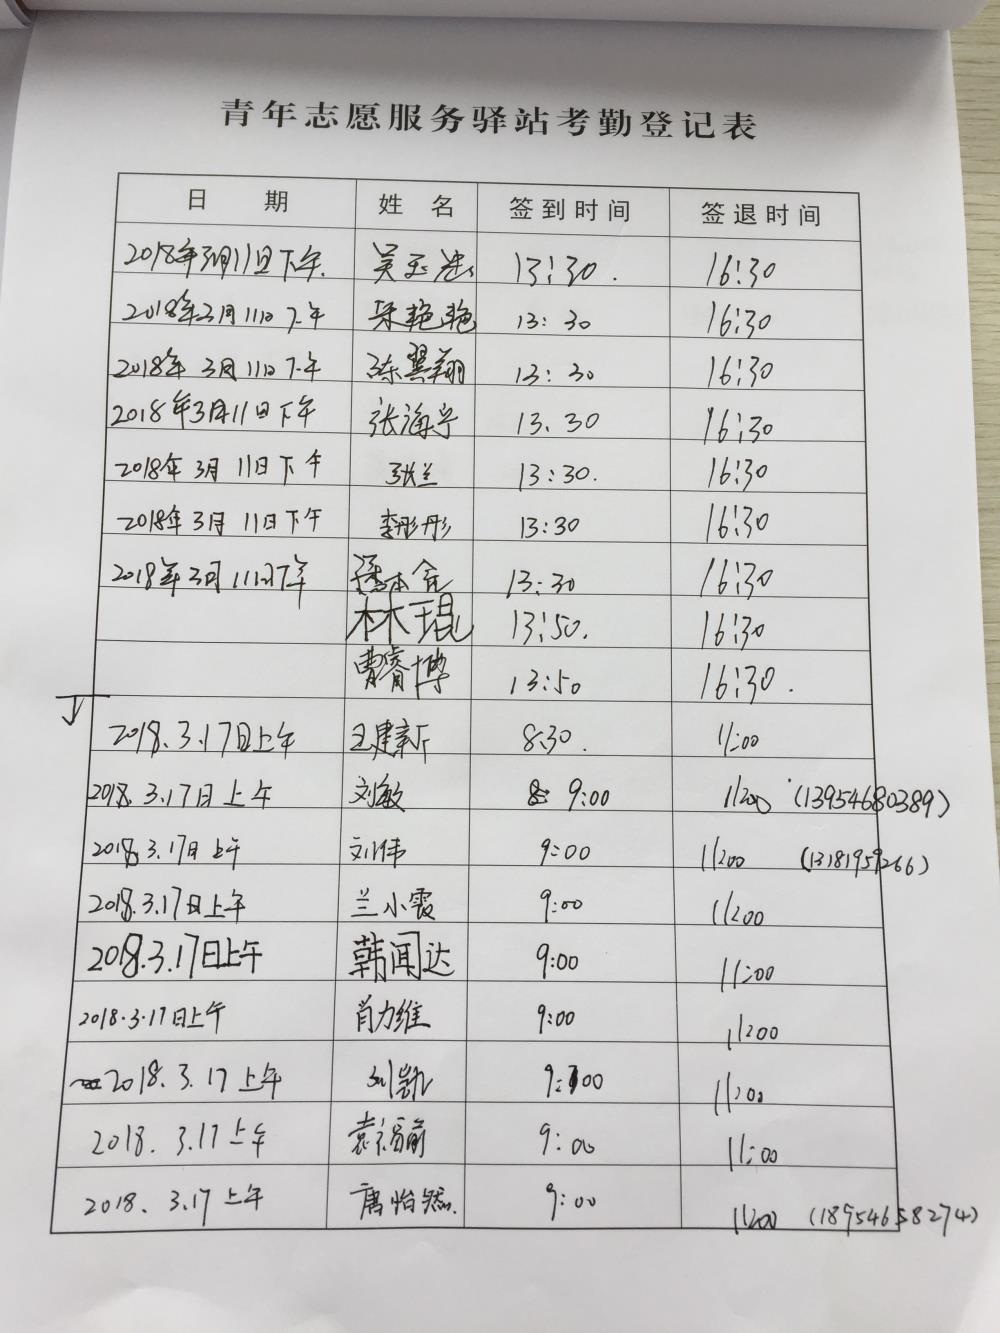 青年志愿服务驿站考勤登记表
日 期 姓 名 签到时间 签退时间
2018年3月11日下午. 吴玉 13:30. 16:30
2018年3月11日下午 艳艳 13:30 16:30
2018年3月11日下午 陈翼翔 13:30 16:30
2018年3月11日下午 张海宁 13.30 16:30
2018年3月11日下午 张兰 13:30. 16:30
2018年3月11日下午 李彤彤 13:30 16:30
2018年3月11日下午 本 13:30 16:30
林琨 13:50. 16:30
曹睿博 13:50 16:30.
2018.3.17日上午 王建新 8:30. 11:00
2018.3.17日上午 刘敏 9:00 11:00 (13954680389)
2018.3.17日上午 刘伟 9:00 11:00
2018.3.17日上午 兰小霞 9:00 11:00
2018.3.17日上午 韩闻达 9:00 11:00
2018.3.17日上午 肖力维 9:00 11:00
2018.3.17上午 刘凯 9:00 11:00
2018.3.17上午 袁福前 9:00 11:00
2018.3.17上午 唐怡然. 9:00 11:00 (18954658274)